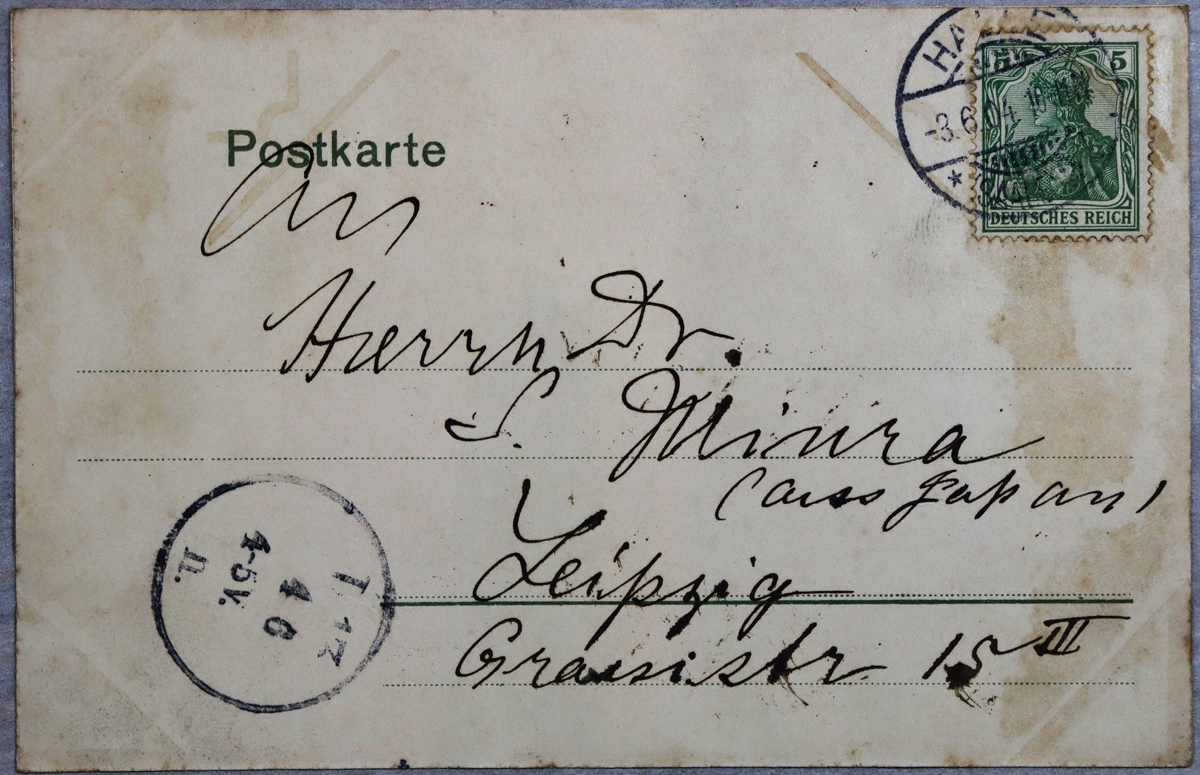 Postkarte
5 5
-3.6.04.
DEUTSCHES REICH
An
Herrn Dr.
S. Miura
(aus Japan)
Leipzig
Grassistr 15 III
4 6
4-5V.